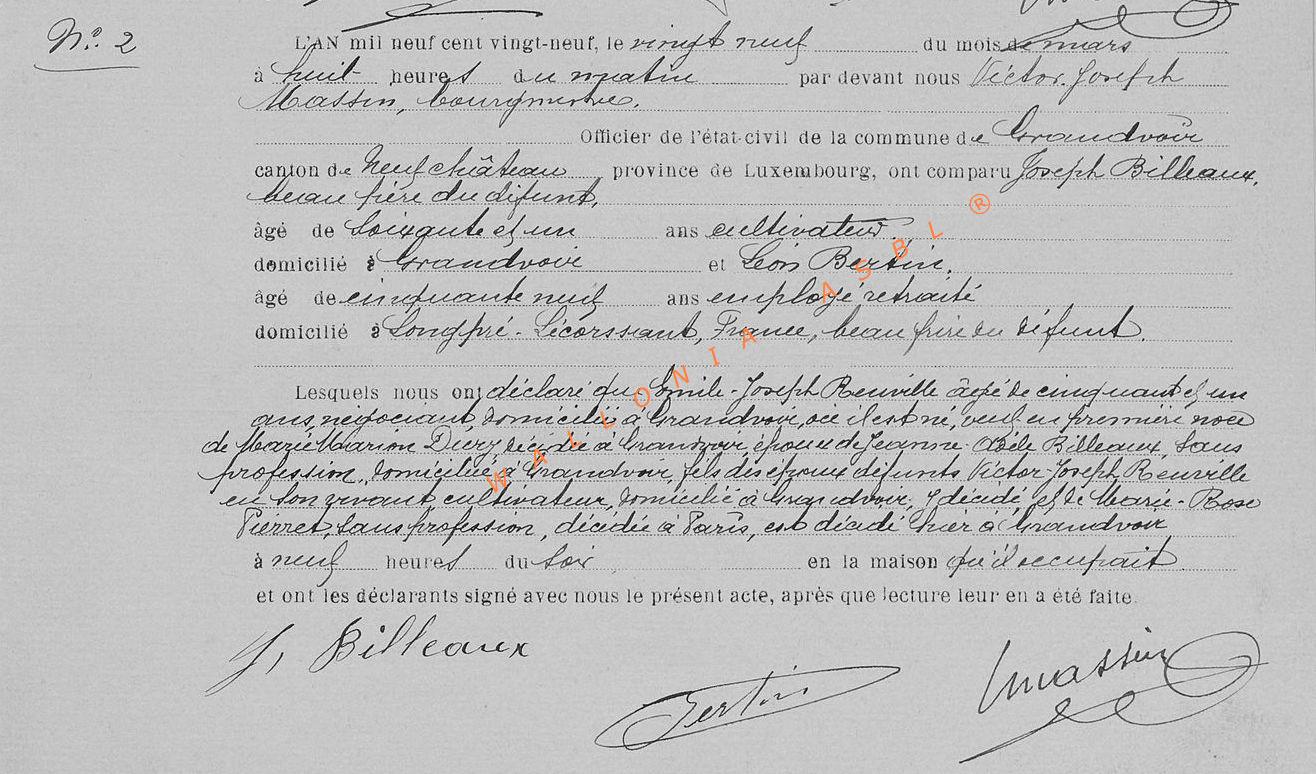 N.º 2
L'AN mil neuf cent vingt-neuf, le vingt neuf du mois de mars
à huit heures du matin par devant nous Victor Joseph
Massin, bourgmestre.
Officier de l'état-civil de la commune de Grandvoir
canton de Neufchâteau province de Luxembourg, ont comparu Joseph Billeaux,
beau frère du défunt,
âgé de Soixante et un ans cultivateur
domicilié à Grandvoir et Léon Bertin,
âgé de cinquante neuf ans employé retraité
domicilié à Longpré - France, beau frère du défunt.
Lesquels nous ont déclaré que Emile-Joseph Renville âgé de cinquante et un
ans, négociant, domicilié à Grandvoir, où il est né, veuf en première noce
de Marie décédée à Grandvoir, époux de Jeanne Adèle Billeaux, Sans
profession, domiciliée à Grandvoir, fils des époux défunts Victor-Joseph Renville
en son vivant cultivateur, domicilié à Grandvoir, y décédé, et de Marie-Rose
Pierret, Sans profession, décédée à Paris, est décédé hier à Grandvoir
à neuf heures du Soir en la maison qu'il occupait
et ont les déclarants signé avec nous le présent acte, après que lecture leur en a été faite.
J. Billeaux
Bertin
Massin
WALLONIA ASBL ®